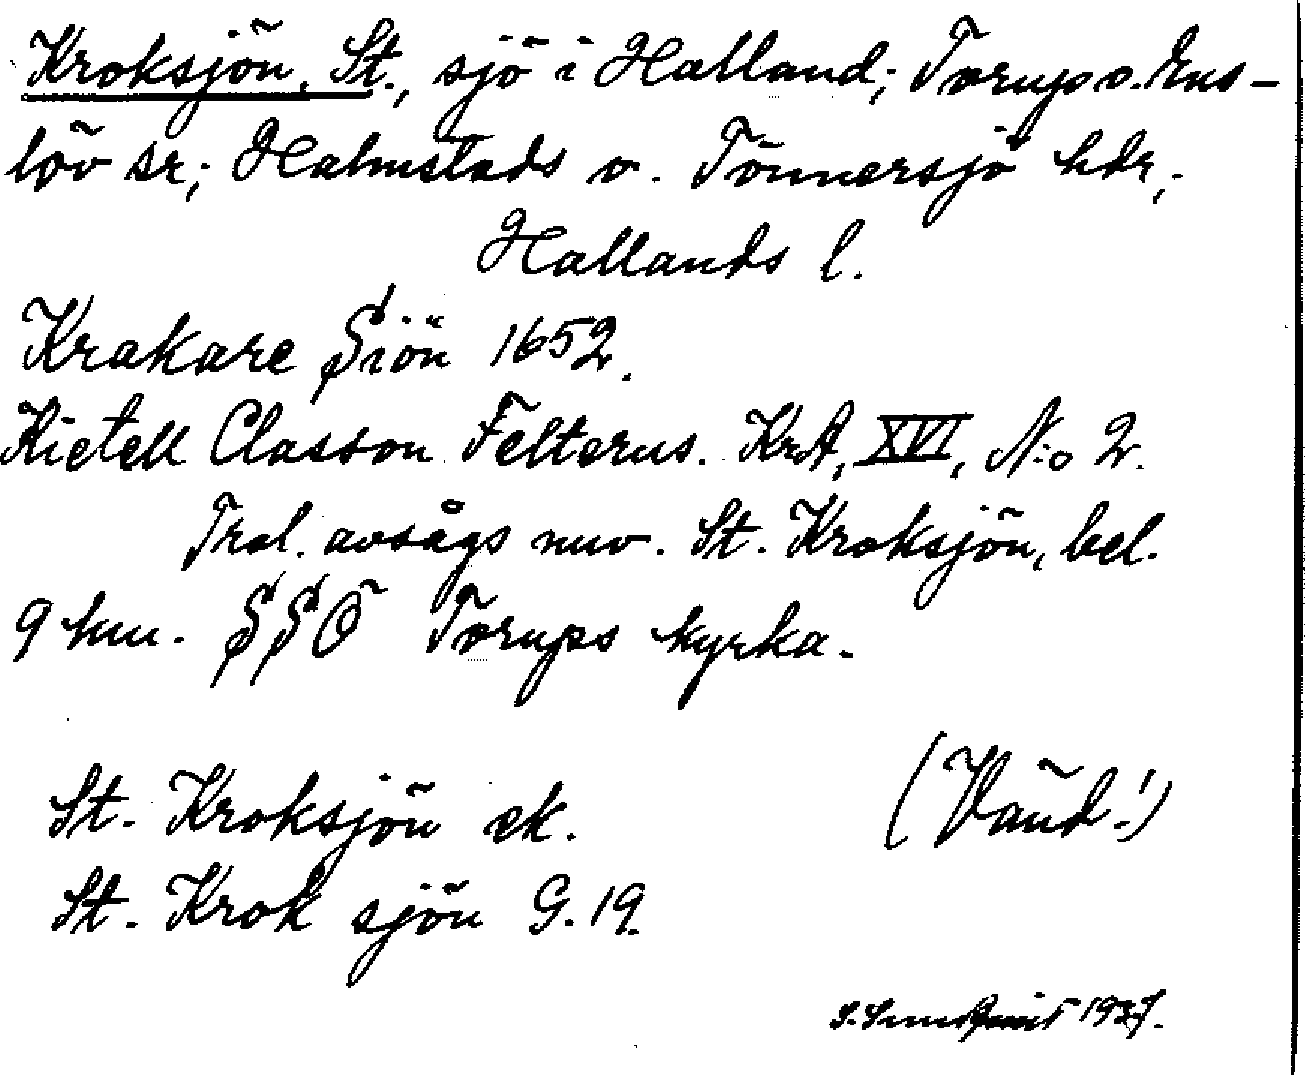 Kroksjön, St., sjö i Halland; Torups o. Ens-
löv sr; Halmstads o. Tönnersjö hdr,
Hallands l.
Krakare Siön 1652.
Kietell Classon Felterus. KrA, XVI, N:o 2.
Trol. avsågs nuv. St. Kroksjön, bel.
9 km. SSÖ Torups kyrka.
St. Kroksjön ek.
(Vänd!)
St. Krok sjön G. 19.
1937.